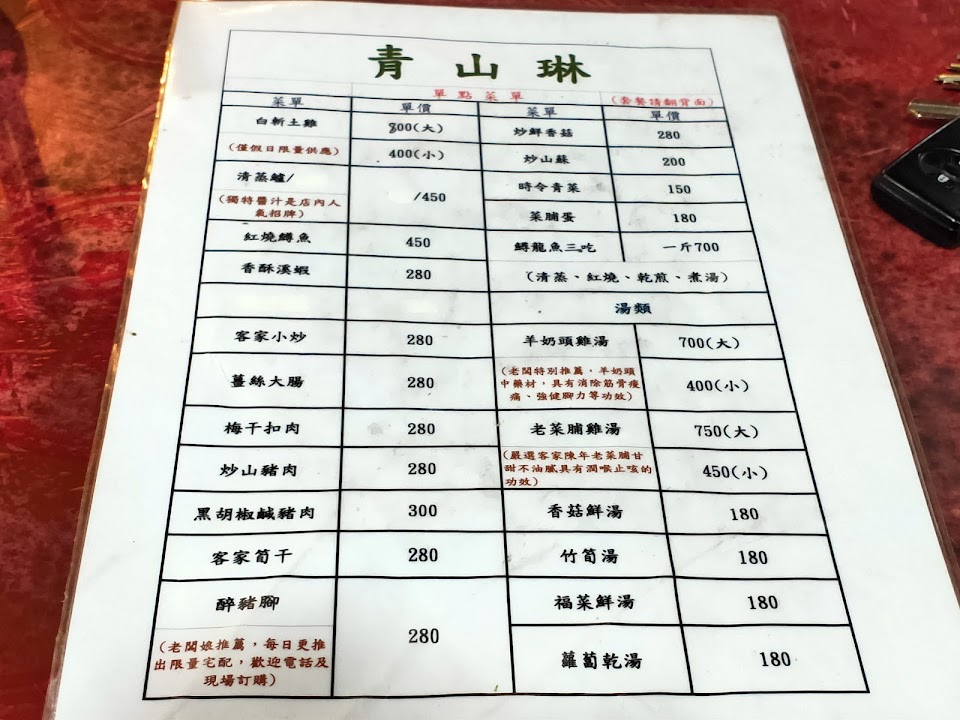 青山琳
單點菜單 (套餐請翻背面)
菜單 單價 菜單 單價
白斬土雞 800(大) 炒鮮香菇 280
(僅假日限量供應) 400(小) 炒山蘇 200
清蒸鱸/ /450 時令青菜 150
(獨特醬汁是店內人
氣招牌) 菜脯蛋 180
紅燒鱒魚 450 鱘龍魚三吃 一斤700
香酥溪蝦 280 (清蒸、紅燒、乾煎、煮湯)
湯類
客家小炒 280 羊奶頭雞湯 700(大)
薑絲大腸 280 400(小)
(老闆特別推薦,羊奶頭
中藥材,具有消除筋骨痠
痛、強健腳力等功效)
梅干扣肉 280 老菜脯雞湯 750(大)
炒山豬肉 280 450(小)
(嚴選客家陳年老菜脯甘
甜不油膩具有潤喉止咳的
功效)
黑胡椒鹹豬肉 300 香菇鮮湯 180
客家筍干 280 竹筍湯 180
醉豬腳 280 福菜鮮湯 180
(老闆娘推薦,每日更推
出限量宅配,歡迎電話及
現場訂購)
蘿蔔乾湯 180